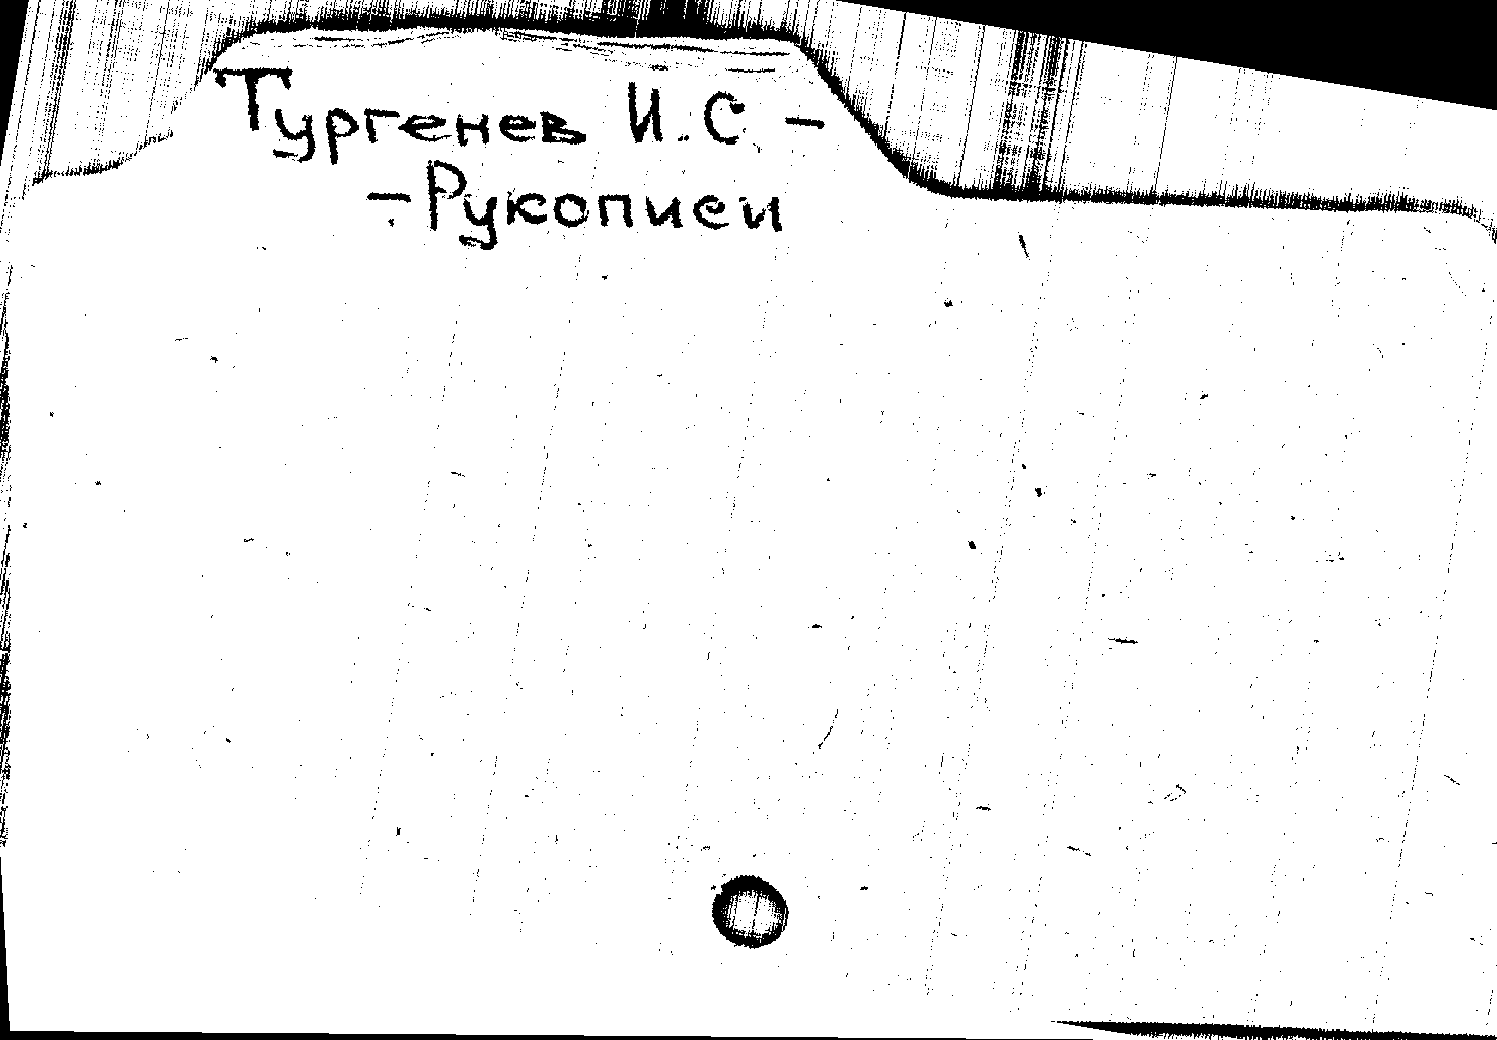 Тургенев И.С. –
– Рукописи